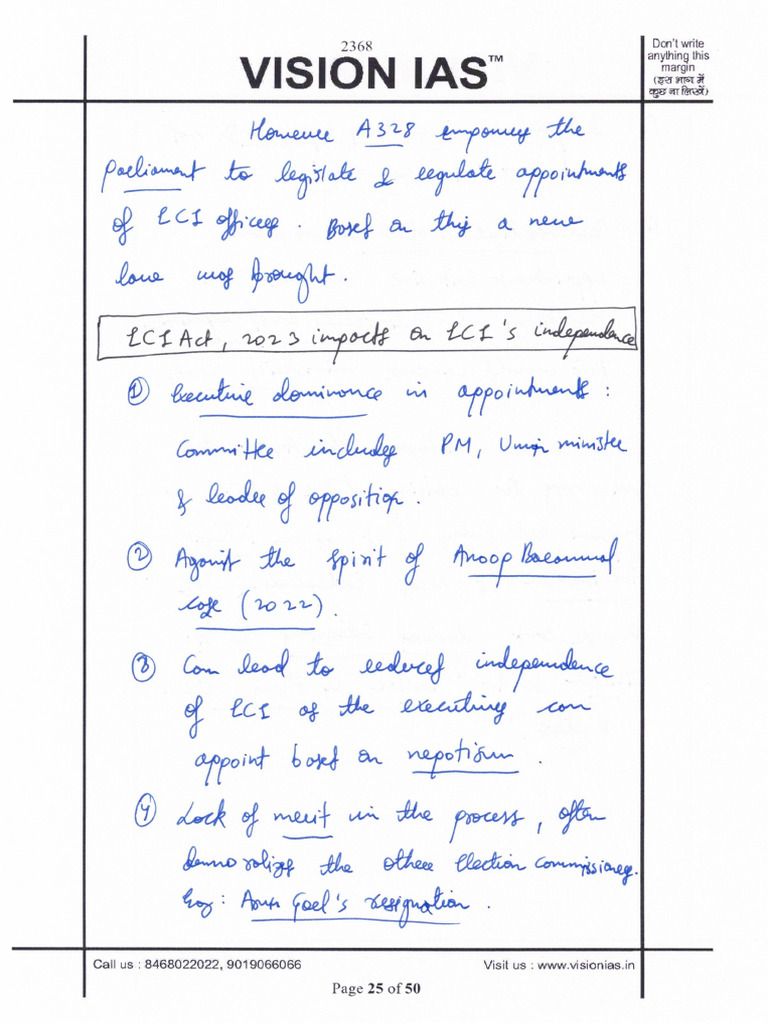 2368
VISION IAS™
Don't write
anything this
margin
(इस भाग में
कुछ ना लिखें)
However A328 empowers the
Parliament to legislate & regulate appointments
of ECI officers. Based on this a new
law was brought.
ECI Act, 2023 impacts on ECI's independence
① Executive dominance in appointments:
Committee includes PM, Union minister
& leader of opposition.
② Against the spirit of Anoop Baranwal
case (2022).
③ Can lead to reduced independence
of ECI as the executive can
appoint based on nepotism.
④ Lack of merit in the process, often
demoralizes the other Election commissioners.
Eg: Arun Goel's resignation.
Call us : 8468022022, 9019066066
Visit us : www.visionias.in
Page 25 of 50